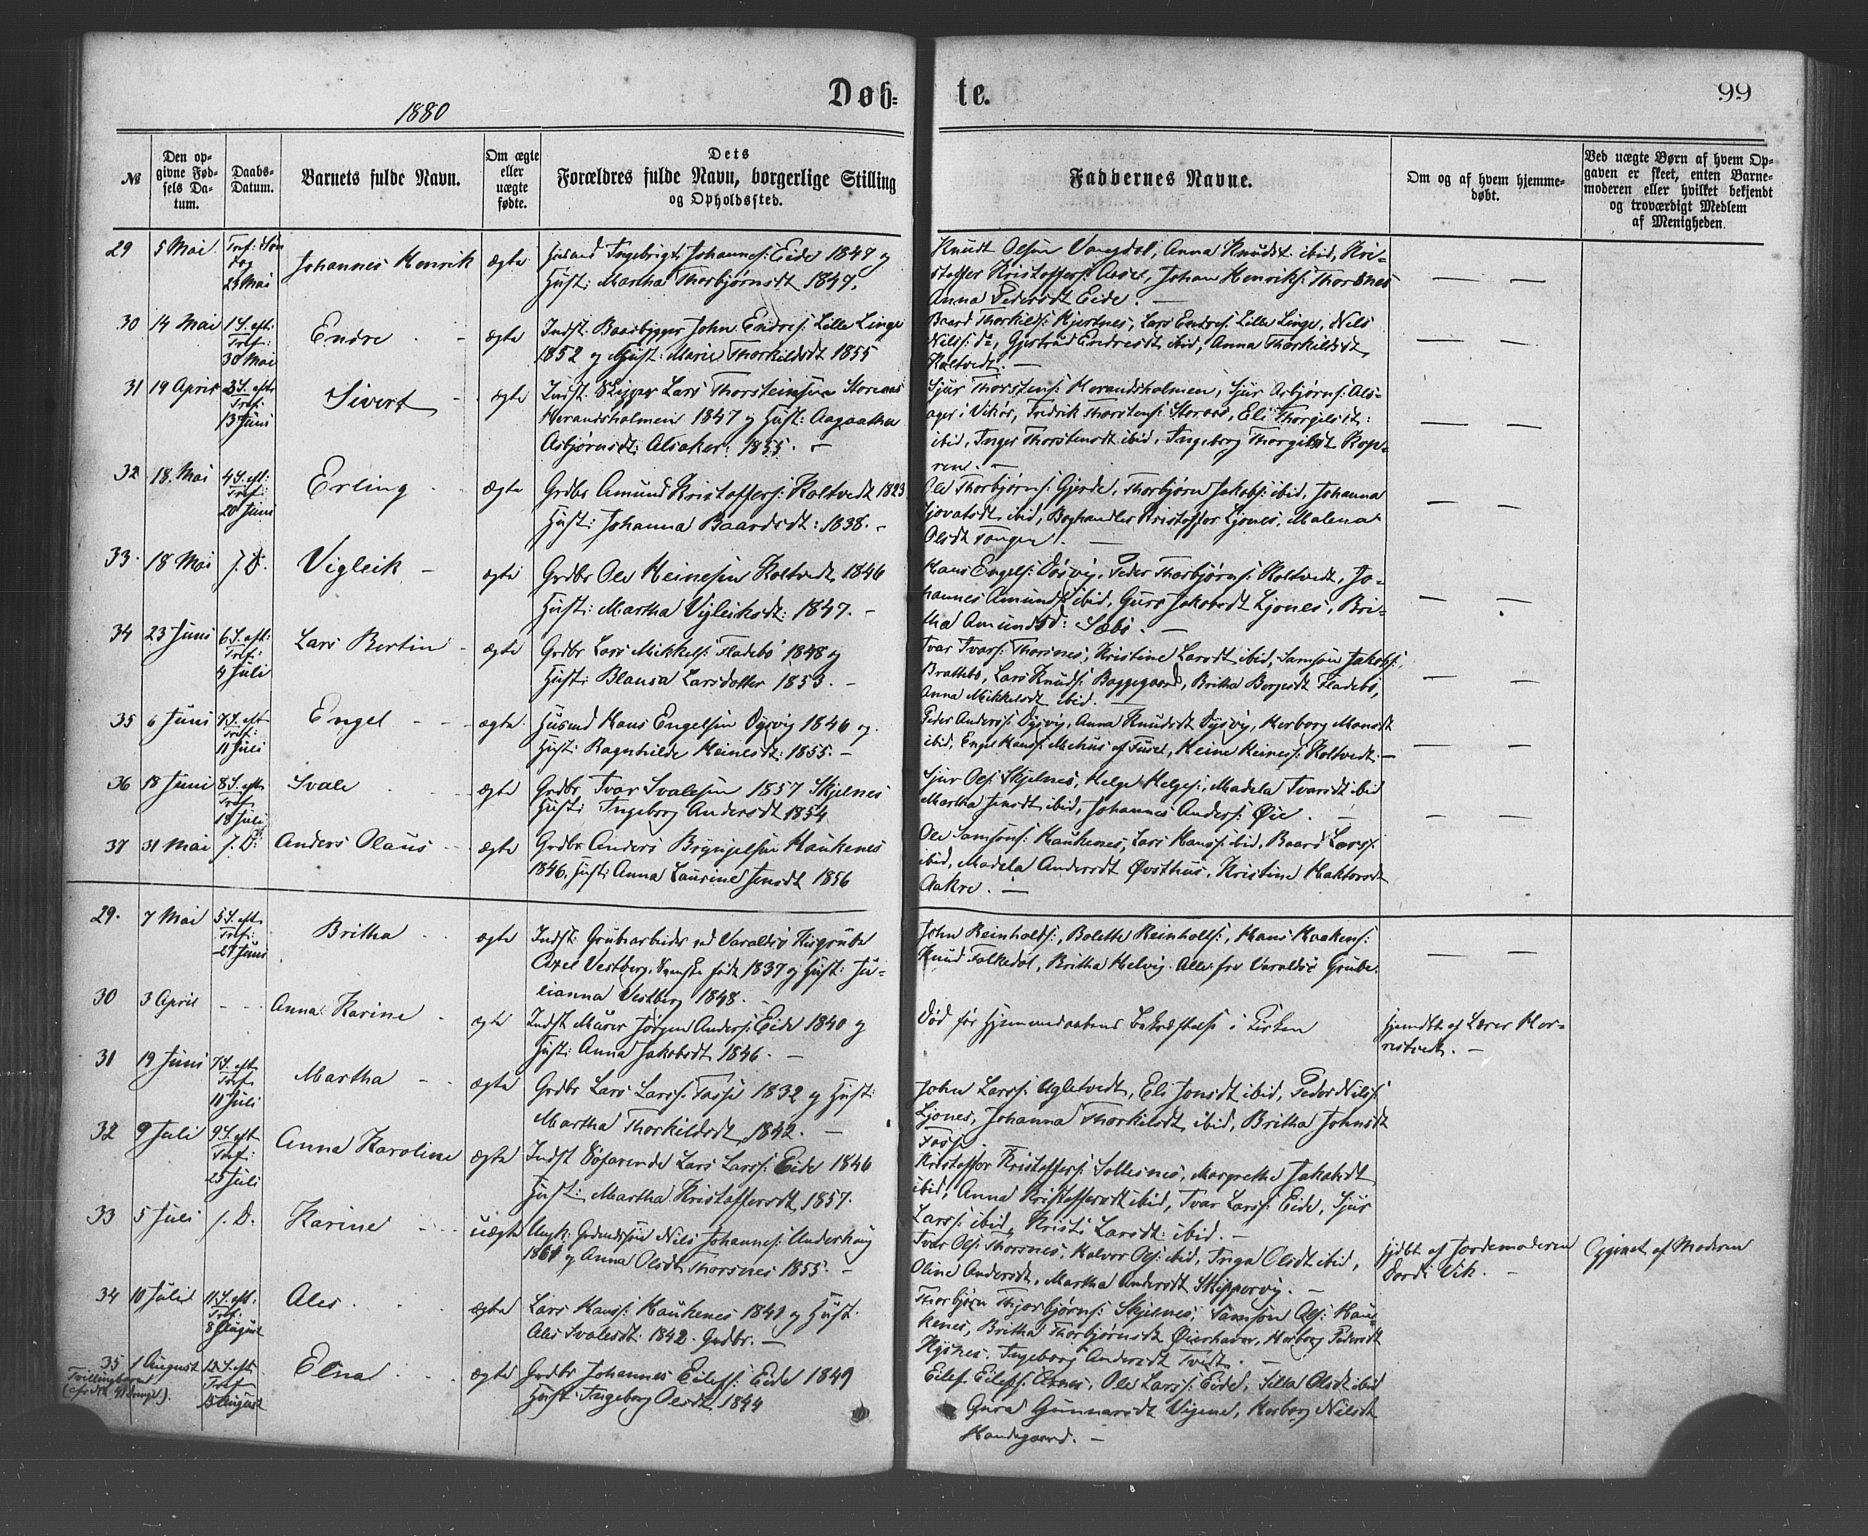 1880
Døb=
te.
99
№
Den op-
givne Fød-
sels Da-
tum.
Daabs-
Datum.
Barnets fulde Navn.
Om ægte
eller
uægte
fødte.
Dets
Forældres fulde Navn, borgerlige Stilling
og Opholdssted.
Faddernes Navne.
Om og af hvem hjemme-
døbt.
Ved uægte Børn af hvem Op-
gaven er skeet, enten Barne-
moderen eller hvilket bekjendt
og troværdigt Medlem
af Menigheden.
29 5 Mai Tref: Søn
dag
23 Mai
Johannes Henrik ægte
Husmd Ingebrigt Johannes: Eide 1847 og
Hust: Martha Thorbjørnsdt 1847.
Knudt Olsen Vangdal, Anna Knudsdt ibid, Kri-
stoffer Kristoffers: Aasæt, Johan Henriks: Thorsnes
Anna Pedersdt Eide. —
— —
30 14 Mai 1 S. eft:
Tref:
30 Mai
Endre - - ægte
Indst. Baadbygger John Endres: Lille Linge
1852 og Hust: Marie Thorkildsdt 1855
Baard Thorkils: Hjertnes, Lars Endres: Lille Linge, Nils
Nils: do, Gjertrud Endresdt ibid, Anna Thorkildsdt
Koltvedt. —
— —
31 19 April 3 S. eft
Tref:
13 Juni
Sivert - ægte
Indst. Skipper Lars Thorsteinsen Storenæs
Herandsholmen 1847 og Hust: Aagaatha
Asbjørnsdt: Alsaker: 1855. —
Sjur Thorstens: Herandsholmen, Sjur Asbjørns: Als-
ager i Vikør, Fredrik Thorstens: Storenæs, Eli Thorgilsdt:
ibid, Inger Thorstensdt ibid, Ingeborg Thorgilsdt Rop-
ren. —
— —
32 18 Mai 4 S. eft:
Tref:
20 Juni
Erling - ægte
Grdbr Amund Kristoffers: Koltvedt 1823
Hust: Johanna Baardsdt: 1838. -
Ole Thorbjørns: Gjerde, Thorbjørn Jakobs: ibid, Johanna
Sjovatsdt ibid, Boghandler Kristoffer Ljones, Malena
Olsdt Tangen. —
— —
33. 18 Mai s. D.
Vigleik - ægte
Grdbr Ole Heinesen Koltvedt 1846
Hust: Martha Vigleiksdt: 1847. -
Hans Engels: Dysvig, Peder Thorbjørns: Koltvedt, Jo-
hannes Amunds: ibid, Guro Jakobsdt Ljones, Bri-
tha Amundsd: Sæbø. —
— —
34 23 Juni 6 S. eft:
Tref:
4 Juli
Lars Bertin - ægte
Grdbr Lars Mikkels: Fladebø 1848 og
Hust: Blansa Larsdotter 1853. -
Ivar Ivars: Thorsnes, Kristine Larsdt ibid, Samson Jakobs:
Brattebø, Lars Knuds: Baggegaard, Britha Børgesdt Fladebø,
Anna Mikkelsdt ibid. —
— —
35 6 Juni 7 S. eft
Tref:
11 Juli
Engel - - - ægte.
Husmd Hans Engelsen Dysvig 1846 og
Hust: Ragnhilde Heinesdt: 1855. -
Peder Anders: Dysvig, Anna Knudsdt Dysvig, Herborg Mansdt
ibid, Engel Hans: Mehus af Fuset, Heine Heines: Koltvedt. —
— —
36 18 Juni 8 S. eft
Tref
18 Juli
Svale - - ægte
Grdbr. Ivar Svalesen 1857 Skjelnes
Hust: Ingeborg Andersdt 1854
Sjur Ols: Skjelnes, Helge Helges:, Madela Ivarsdt ibid
Martha Jensdt ibid, Johannes Anders: Øie. —
— —
37 31 Mai s. D:
Anders Olaus - - ægte
Grdbr Anders Brynjelsen Haukenes
1846. Hust: Anna Laurine Jensdt 1856
Ole Samsons: Haukenes, Lars Hans: ibid, Baard Lars:
ibid, Madela Andersdt Øvsthus, Kristine Haktorsdt
Aakre. —
— —
29. 7 Mai 5 S. eft
Tref:
27 Juni
Britha - ægte
Indst: Grubearbeider ved Varaldsø Kisgrube
Axel Vestberg, Svenske født 1837 og Hust: Ju-
lianna Vestberg 1848. -
John Reinholds:, Bolette Reinholts:, Hans Haakens:
Knud Folkedal, Britha Helvig. Alle fra Varaldsø Grube.
— —
30 3 April - -
Anna Karine - ægte
Indst Murer Jørgen Anders: Eide 1840 og
Hust: Anna Jakobsdt 1846. —
Død før Hjemmedaabens Bekræftelse i Kirken
hjemdt af Lærer Her-
restvedt. —
31 19 Juni 7 S. eft
Tref
11 Juli
Martha - - ægte
Grdbr Lars Lars: Tosse 1832 og Hust:
Martha Thorkildsdt 1842. —
John Lars: Ugletvedt, Eli Jonsdt ibid, Peder Nils:
Ljones, Johanna Thorkilsdt ibid, Britha Johnsdt
Tosse.
32 9 Juli 9 S. eft
Tref:
25 Juli
Anna Karoline ægte
Indst Søfarende Lars Lars: Eide 1846
Hust: Martha Kristoffersdt 1857.
Kristoffer Kristoffers: Sollesnes, Margrethe Jakobsdt
ibid, Anna Kristoffersdt ibid, Ivar Lars: Eide, Sjur
Lars: ibid, Kristi Larsdt: ibid. —
33 5 Juli s. D.
Karine - - - uægte
Ungk: Grdmdssøn Nils Johannes: Underhaug
1861 og Anna Olsdt Thorsnes 1855. -
Ivar Ols: Thorsnes, Halvor Ols: ibid, Inga Olsdt ibid,
Oline Andersdt, Martha Andersdt Skippervig. —
hjdbt af Jordemoderen
Dordi Vik. —
Opgivet af Moderen
34 10 Juli 11 S. eft:
Tref:
8 August
Ales - - ægte
Lars Hans: Haukenes 1841 og Hust:
Ales Svalesdt: 1842. Grdbr. —
Thorbjørn Thorbjørns: Skjelnes, Samson Ols: Hau-
kenes, Britha Thorbjørnsdt Øierhavn, Herborg Pedersdt
Nysnes, Ingeborg Andersdt Tvedt. —
35 1 August 12 S. eft
Tref
15 August
Tvillingbarn
Elna - - ægte
Grdbr Johannes Eilefs: Eide 1849
Hust: Ingeborg Olsdt 1844
Eilef Eilefs: Axnes, Ole Lars: Eide, Silla Olsdt ibid
Guro Gunnarsdt Vigene, Herborg Nilsdt
Handegaard. —